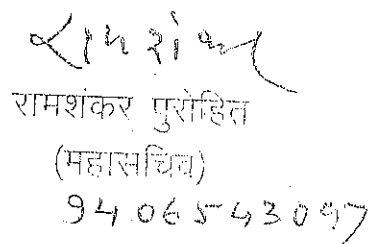 रामशंकर
रामशंकर पुरोहित
(महासचिव)
9406543097